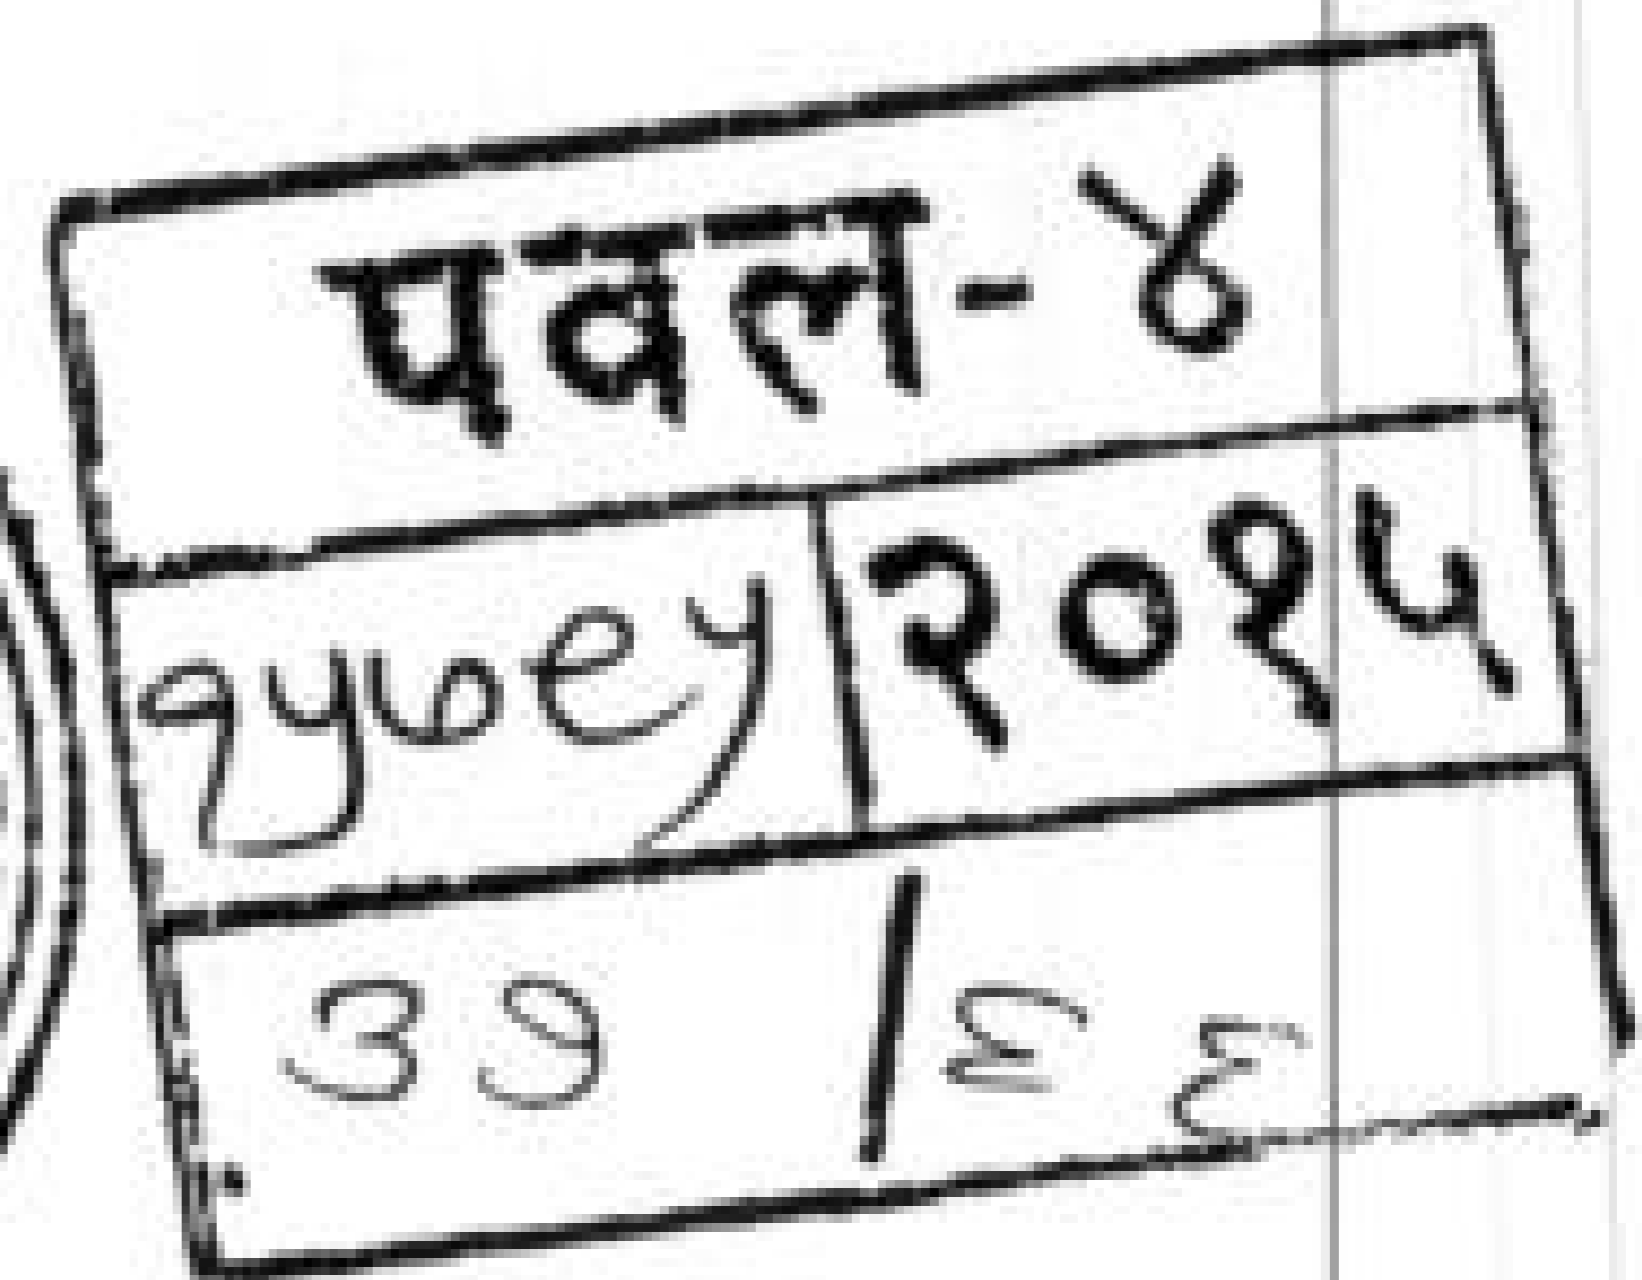 पवल-४
१५७९५ २०१५
३९ / ६६